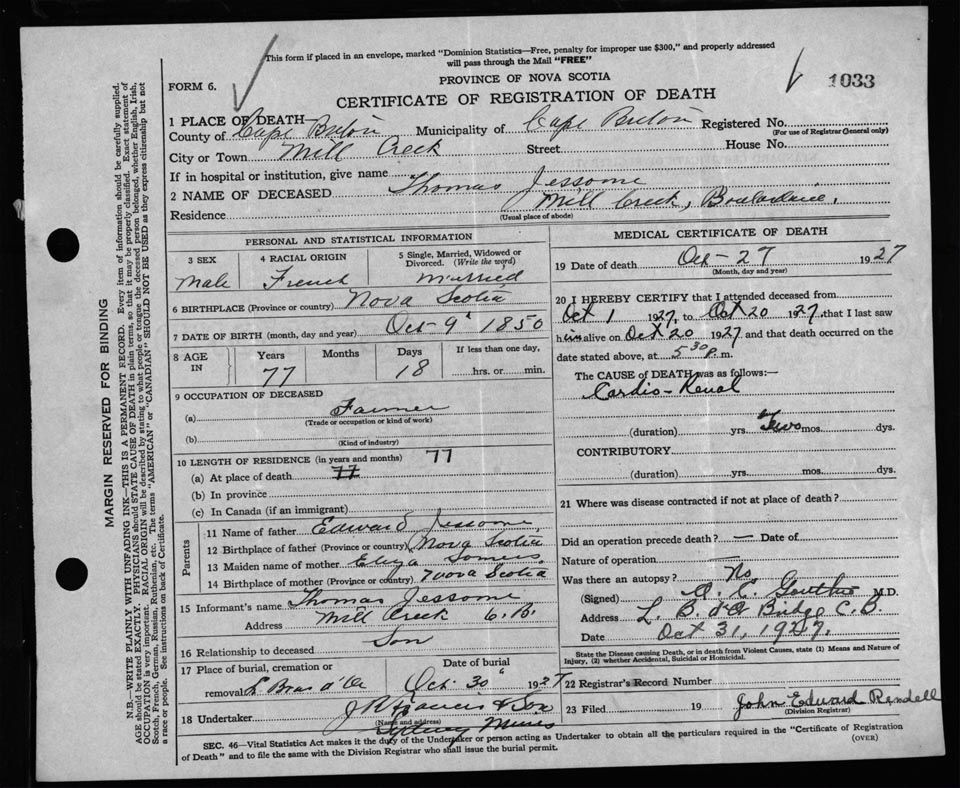 This form if placed in an envelope, marked "Dominion Statistics—Free, penalty for improper use $300," and properly addressed
will pass through the Mail "FREE"
FORM 6.
PROVINCE OF NOVA SCOTIA
1033
CERTIFICATE OF REGISTRATION OF DEATH
1 PLACE OF DEATH
County of Cape Breton Municipality of Cape Breton Registered No.
(For use of Registrar General only)
City or Town Mill Creek Street House No.
If in hospital or institution, give name
2 NAME OF DECEASED Thomas Jessome
Residence Mill Creek, Boularderie.
(Usual place of abode)
PERSONAL AND STATISTICAL INFORMATION
3 SEX 4 RACIAL ORIGIN 5 Single, Married, Widowed or Divorced. (Write the word)
Male French Married
6 BIRTHPLACE (Province or country) Nova Scotia
7 DATE OF BIRTH (month, day and year) Oct - 9" 1850
8 AGE IN Years Months Days If less than one day,
77 18 hrs. or min.
9 OCCUPATION OF DECEASED
(a) Farmer
(Trade or occupation or kind of work)
(b)
(Kind of industry)
10 LENGTH OF RESIDENCE (in years and months) 77
(a) At place of death 77
(b) In province
(c) In Canada (if an immigrant)
Parents
11 Name of father Edward Jessome
12 Birthplace of father (Province or country) Nova Scotia
13 Maiden name of mother Eliza Somers
14 Birthplace of mother (Province or country) Nova Scotia
15 Informant's name Thomas Jessome
Address Mill Creek C.B.
16 Relationship to deceased Son
17 Place of burial, cremation or removal L Bras d'Or
Date of burial Oct 30" 1927
18 Undertaker J R Francis & Son
(Name and address)
Sydney Mines
MEDICAL CERTIFICATE OF DEATH
19 Date of death Oct - 27 1927
(Month, day and year)
20 I HEREBY CERTIFY that I attended deceased from
Oct 1 1927, to Oct 20 1927, that I last saw
him alive on Oct 20 1927 and that death occurred on
date stated above, at 5 30 p. m.
The CAUSE of DEATH was as follows:—
Cardio-Renal
(duration) yrs. Two mos. dys.
CONTRIBUTORY
(duration) yrs. mos. dys.
21 Where was disease contracted if not at place of death?
Did an operation precede death? — Date of
Nature of operation —
Was there an autopsy? No
(Signed) M.D.
Address L. B. d'Or Bridge C.B.
Date Oct 31, 1927.
State the Disease causing Death, or in death from Violent Causes, state (1) Means and Nature of
Injury, (2) whether Accidental, Suicidal or Homicidal.
22 Registrar's Record Number
23 Filed 19 John Edward Rendell
(Division Registrar)
SEC. 46—Vital Statistics Act makes it the duty of the Undertaker or person acting as Undertaker to obtain all the particulars required in the "Certificate of Registration
of Death" and to file the same with the Division Registrar who shall issue the burial permit.
(OVER)
MARGIN RESERVED FOR BINDING
N.B.—WRITE PLAINLY WITH UNFADING INK—THIS IS A PERMANENT RECORD. Every item of information should be carefully supplied.
AGE should be stated EXACTLY. PHYSICIANS should STATE CAUSE OF DEATH in plain terms, so that it may be properly classified. Exact statement of
OCCUPATION is very important. RACIAL ORIGIN will be described by stating to what people or tongue the deceased person belonged, whether English, Irish,
Scotch, French, German, Russian, Ruthenian, etc. The terms "AMERICAN" or "CANADIAN" SHOULD NOT BE USED as they express citizenship but not
a race or people. See instructions on back of Certificate.